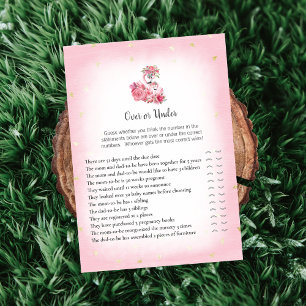 Over or Under
Guess whether you think the number in the
statements below are over or under the correct
numbers. Whoever gets the most correct wins!
There are 33 days until the due date
The mom and dad-to-be have been together for 7 years
The mom and dad-to-be would like to have 3 children
The mom-to-be is 30 weeks pregnant
They waited until 12 weeks to announce
They looked over 50 baby names before choosing
The mom-to-be has 1 sibling
The dad-to-be has 2 siblings
They are registered at 2 places
They have purchased 3 pregnancy books
The mom-to-be has reorganized the nursery 3 times
The dad-to-be has assembled 2 pieces of furniture